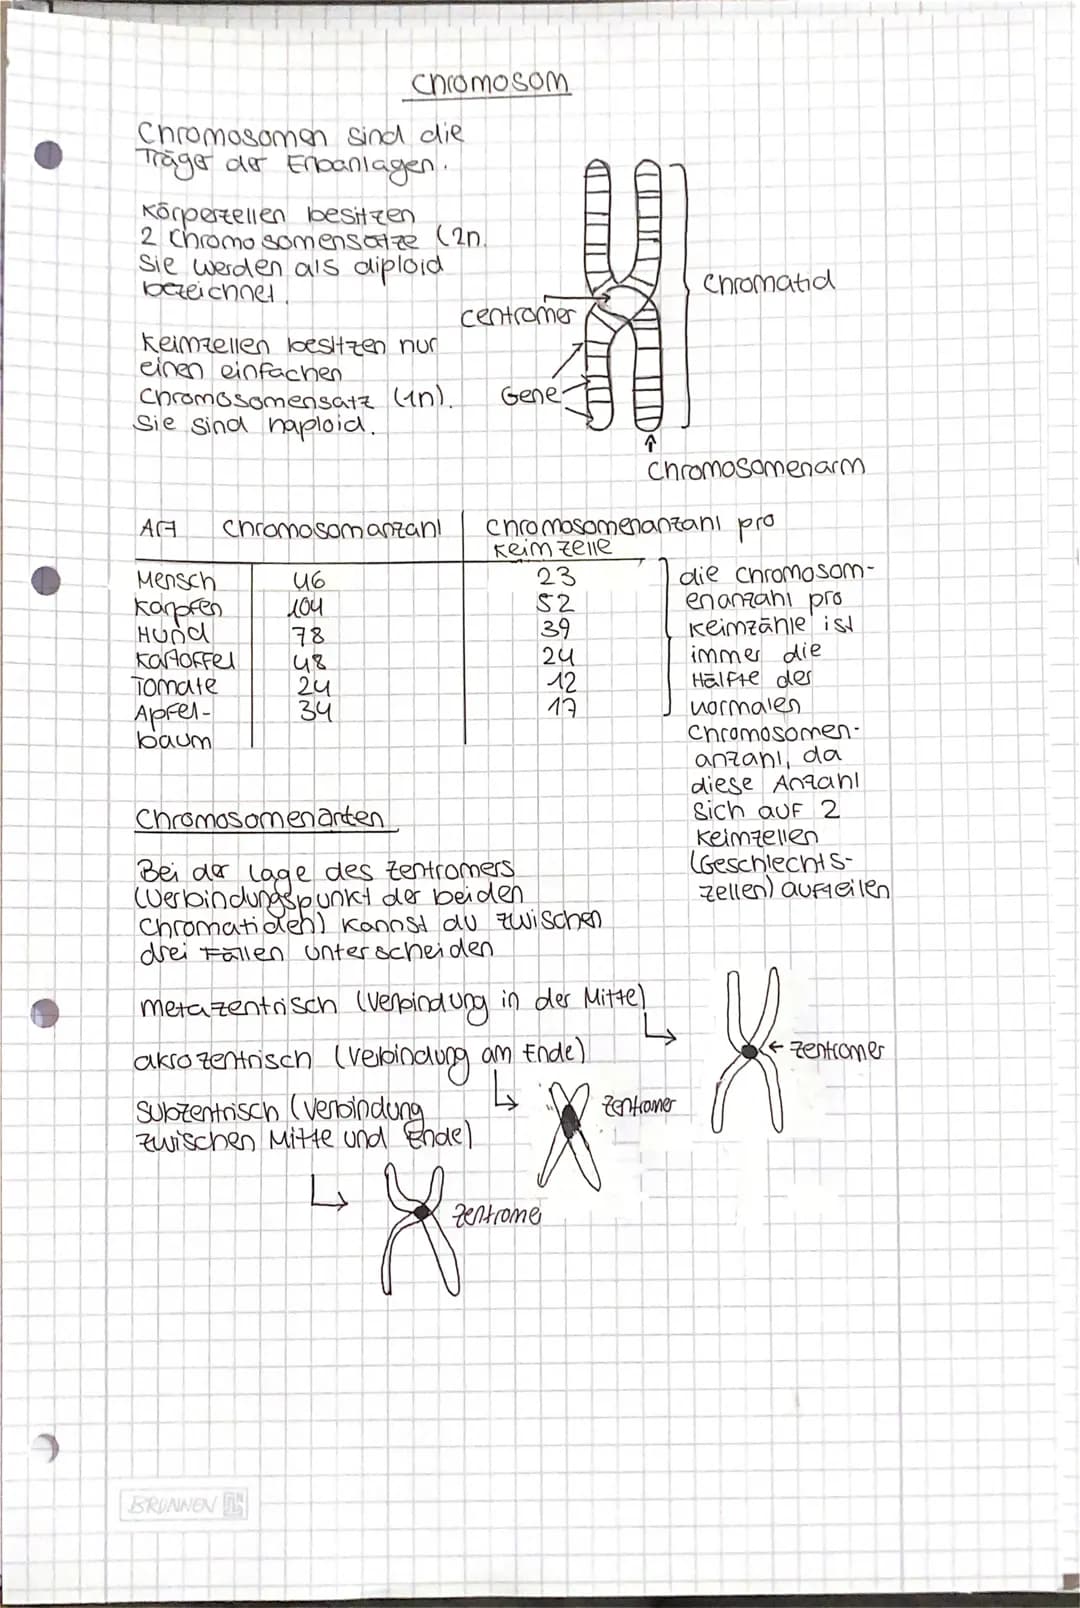 Chromosom
Chromosomen sind die
Träger der Erbanlagen.
Körperzellen besitzen
2 Chromosomensätze (2n.
Sie werden als diploid
bezeichnet.
Keimzellen besitzen nur
einen einfachen
Chromosomensatz (1n).
Sie sind haploid.
Centromer
Chromatid
Gene
Chromosomenarm
Art Chromosomanzahl Chromosomenanzahl pro
Keimzelle
Mensch 46 23
Karpfen 104 52
Hund 78 39
Kartoffel 48 24
Tomate 24 12
Apfel- 34 17
baum
die Chromosom-
enanzahl pro
Keimzähle ist
immer die
Hälfte der
normalen
Chromosomen-
anzahl, da
diese Anzahl
sich auf 2
Keimzellen
(Geschlechts-
zellen) aufteilen
Chromosomenarten
Bei der Lage des Zentromers
(Verbindungspunkt der beiden
Chromatiden) kannst du zwischen
drei Fällen unterscheiden
metazentrisch (Verbindung in der Mitte)
Zentromer
akrozentrisch (Verbindung am Ende)
Zentromer
Subzentrisch (Verbindung
zwischen Mitte und Ende)
Zentromer
BRUNNEN